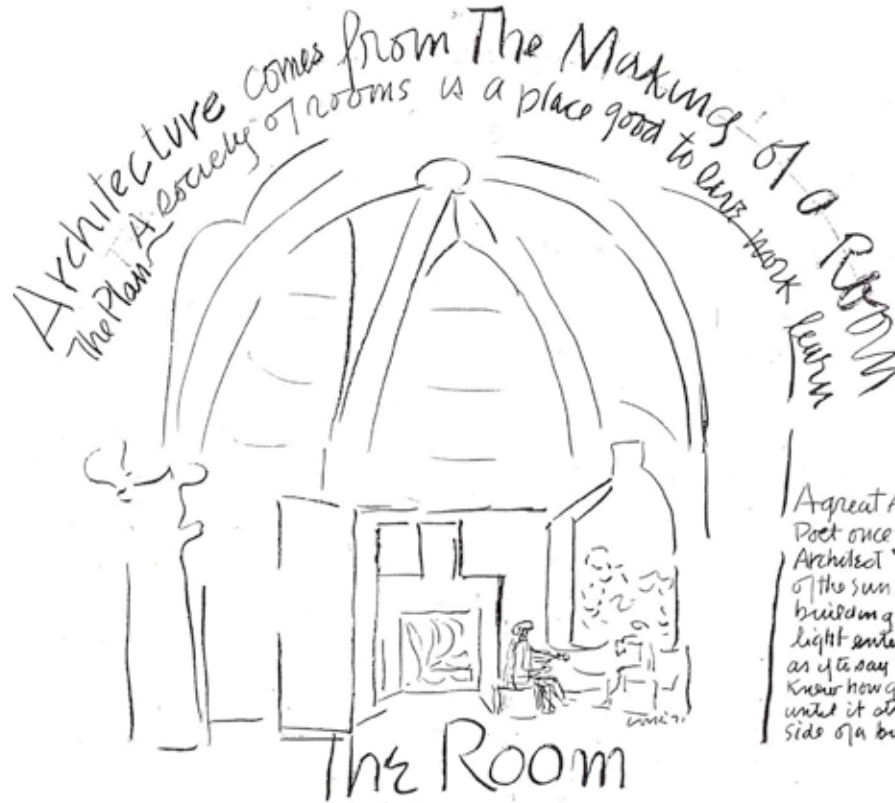 Architecture comes from The Making of a Room
The Plan A society of rooms is a place good to live work learn
A great A
Poet once
Architect
of the sun
building
light ente
as if to say
Knew how g
until it st
side of a bu
The Room